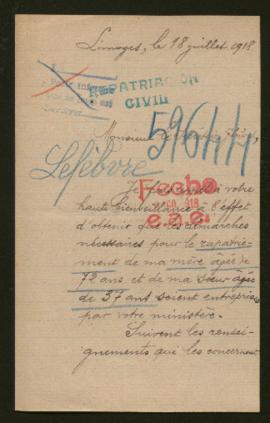 Limoges, le 18 juillet 1918
REPATRIACIÓN
CIVIL
596144
Monsieur le
Lefèbvre
Je fais appel à votre
Fecho
haute bienveillance à l'effet
d'obtenir que les démarches
nécessaires pour le rapatrie-
ment de ma mère âgée de
72 ans et de ma sœur âgée
de 37 ans soient entreprises
par votre ministère.
Suivent les rensei-
gnements qui les concernent